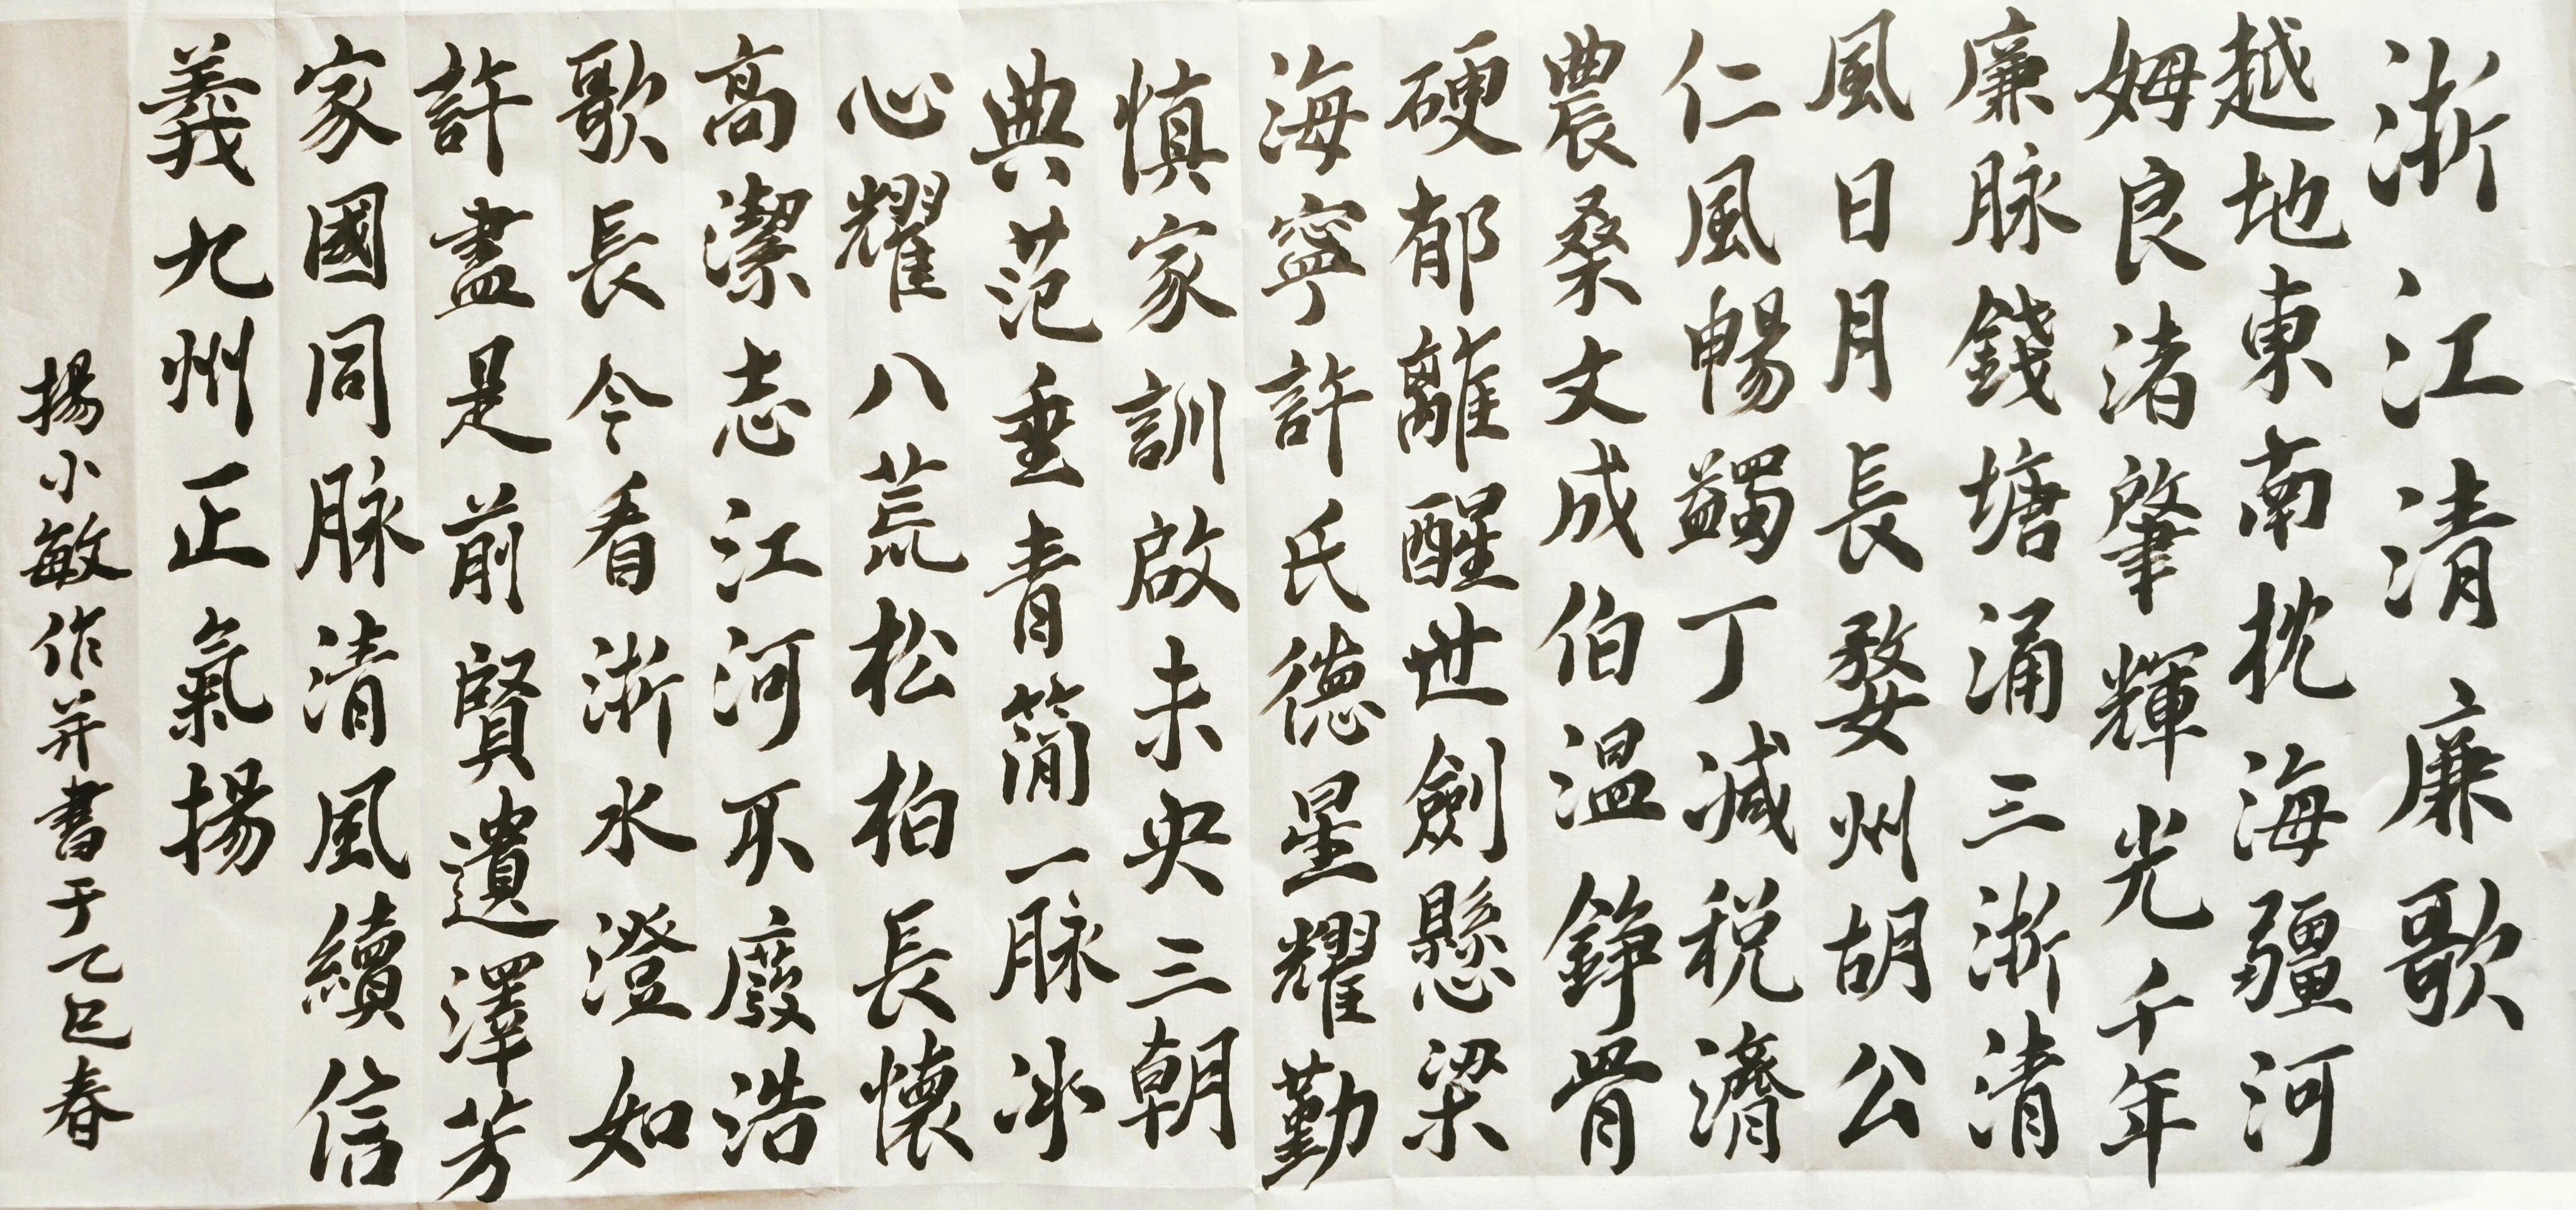 浙江清廉歌
越地東南枕海疆河
姆良渚肇輝光千年
廉脉錢塘涌三浙清
風日月長婺州胡公
仁風暢蠲丁减税濟
農桑文成伯温錚骨
硬郁離醒世劍懸梁
海寧許氏德星耀勤
慎家訓啟未央三朝
典范垂青簡一脉冰
心耀八荒松柏長懷
高潔志江河不廢浩
歌長今看浙水澄如
許盡是前賢遺澤芳
家國同脉清風續信
義九州正氣揚
揚小敏作并書于乙巳春